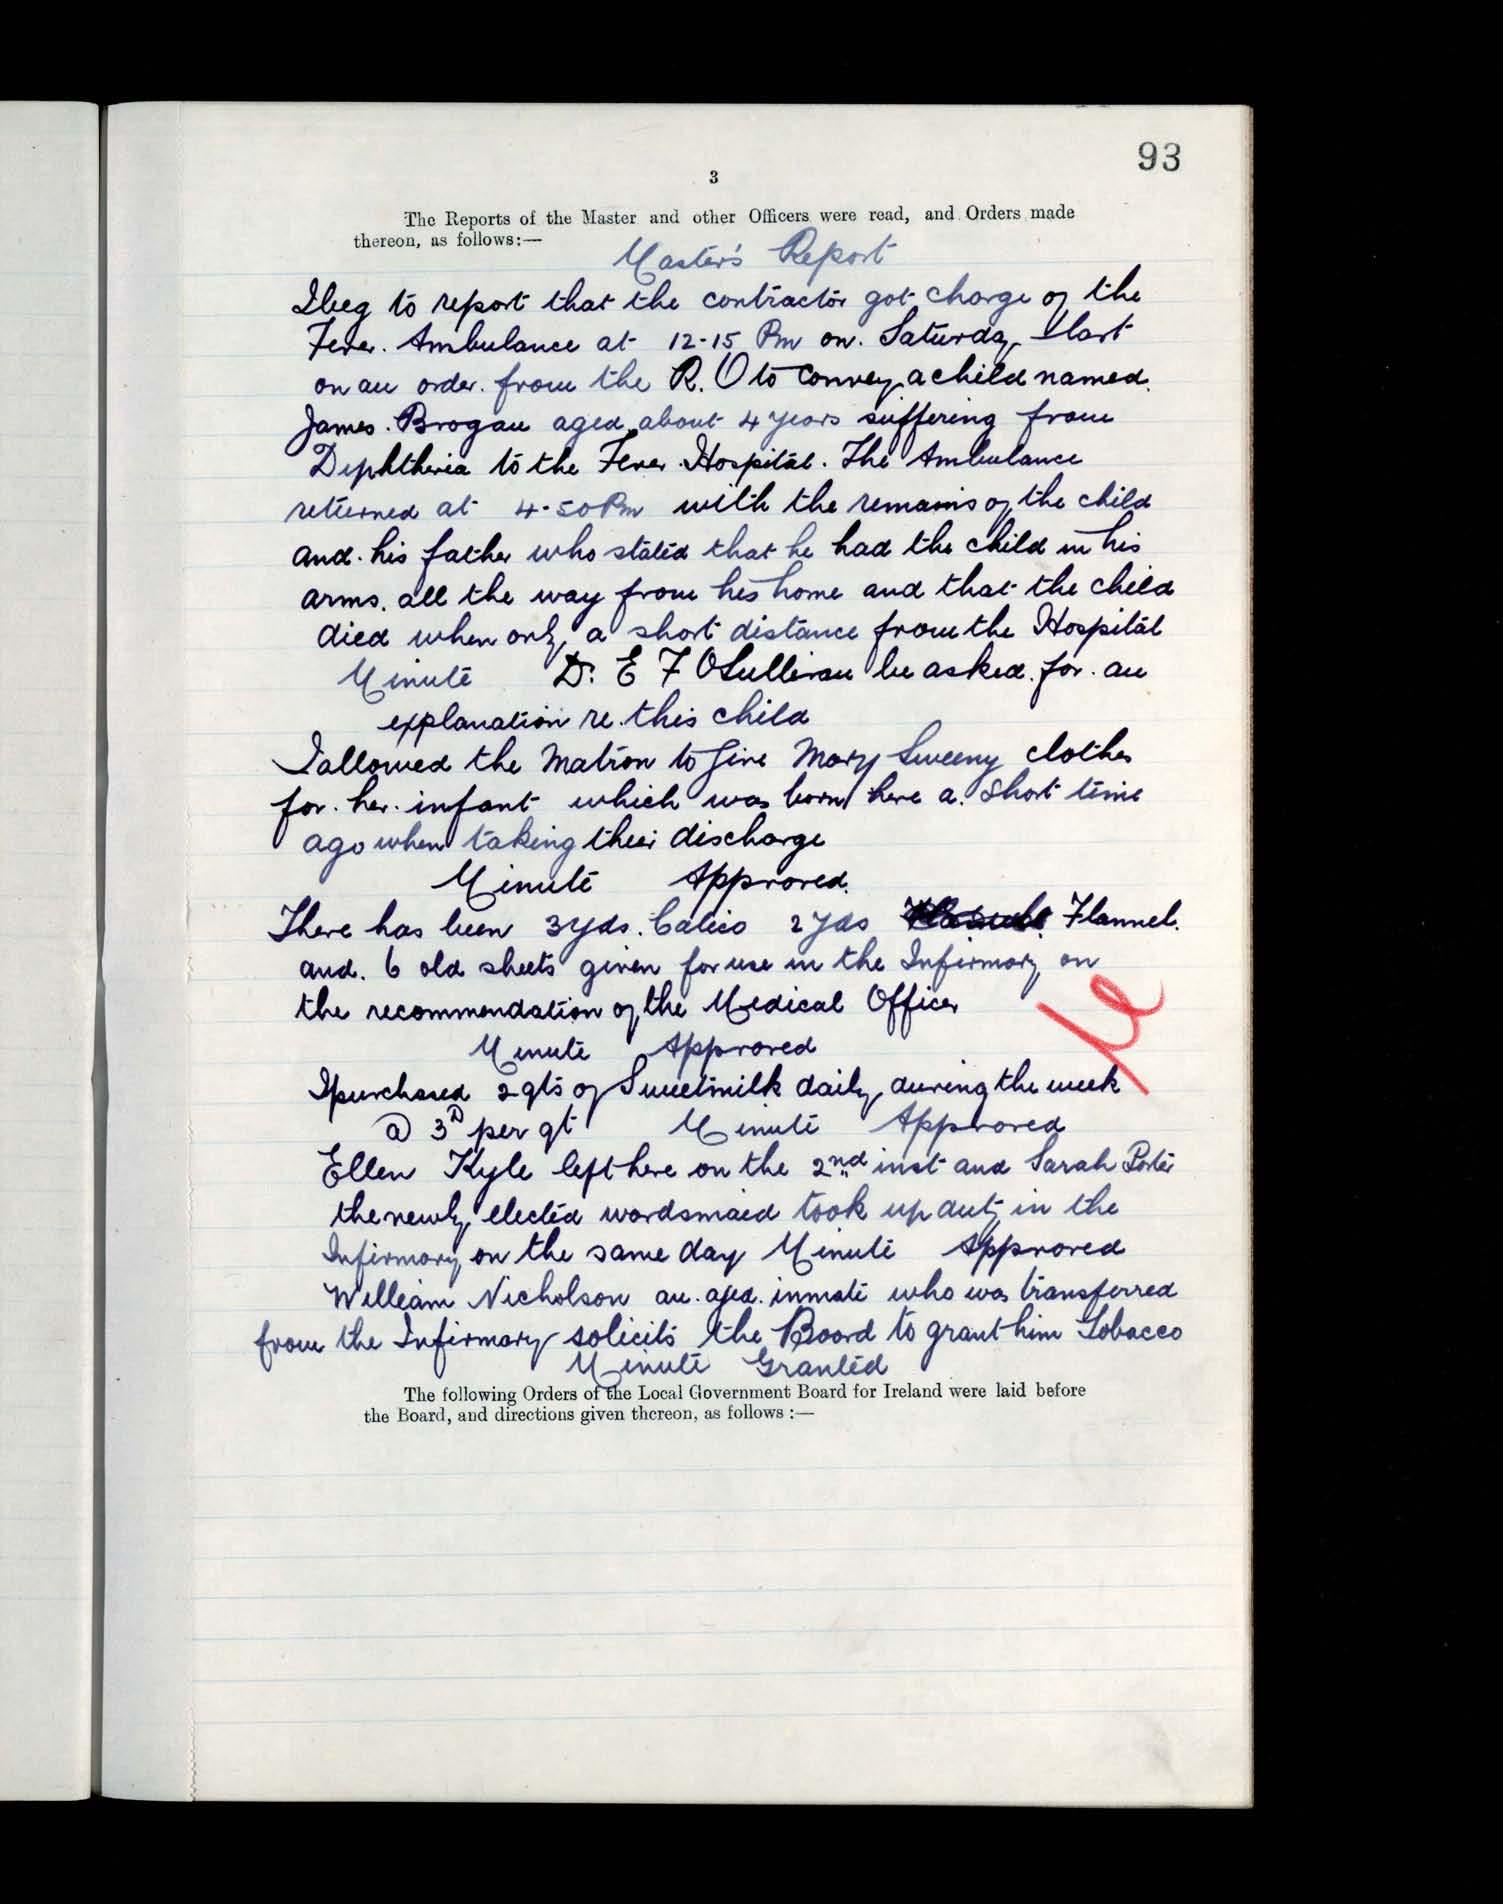 93
3
The Reports of the Master and other Officers were read, and Orders made
thereon, as follows:—
Master's Report
I beg to report that the contractor got charge of the
Fever Ambulance at 12-15 Pm on Saturday last
on an order from the R. O to convey a child named
James Brogan aged about 4 years suffering from
Diphtheria to the Fever Hospital. The Ambulance
returned at 4-50 Pm with the remains of the child
and his father who stated that he had the child in his
arms all the way from his home and that the child
died when only a short distance from the Hospital
Minute Dr. E F O'Sullivan be asked for an
explanation re. this child
I allowed the Matron to give Mary Sweeny clothes
for her infant which was born here a short time
ago when taking their discharge
Minute Approved.
There has been 3 yds. Calico 2 yds Flannel.
and 6 old sheets given for use in the Infirmary on
the recommendation of the Medical Officer
Minute Approved
I purchased 2 qts of Sweetmilk daily during the week
@ 3D per qt Minute Approved
Ellen Kyle left here on the 2nd inst and Sarah Porter
the newly elected wardsmaid took up duty in the
Infirmary on the same day Minute Approved
William Nicholson an aged inmate who was transferred
from the Infirmary solicits the Board to grant him Tobacco
Minute Granted
The following Orders of the Local Government Board for Ireland were laid before
the Board, and directions given thereon, as follows :—